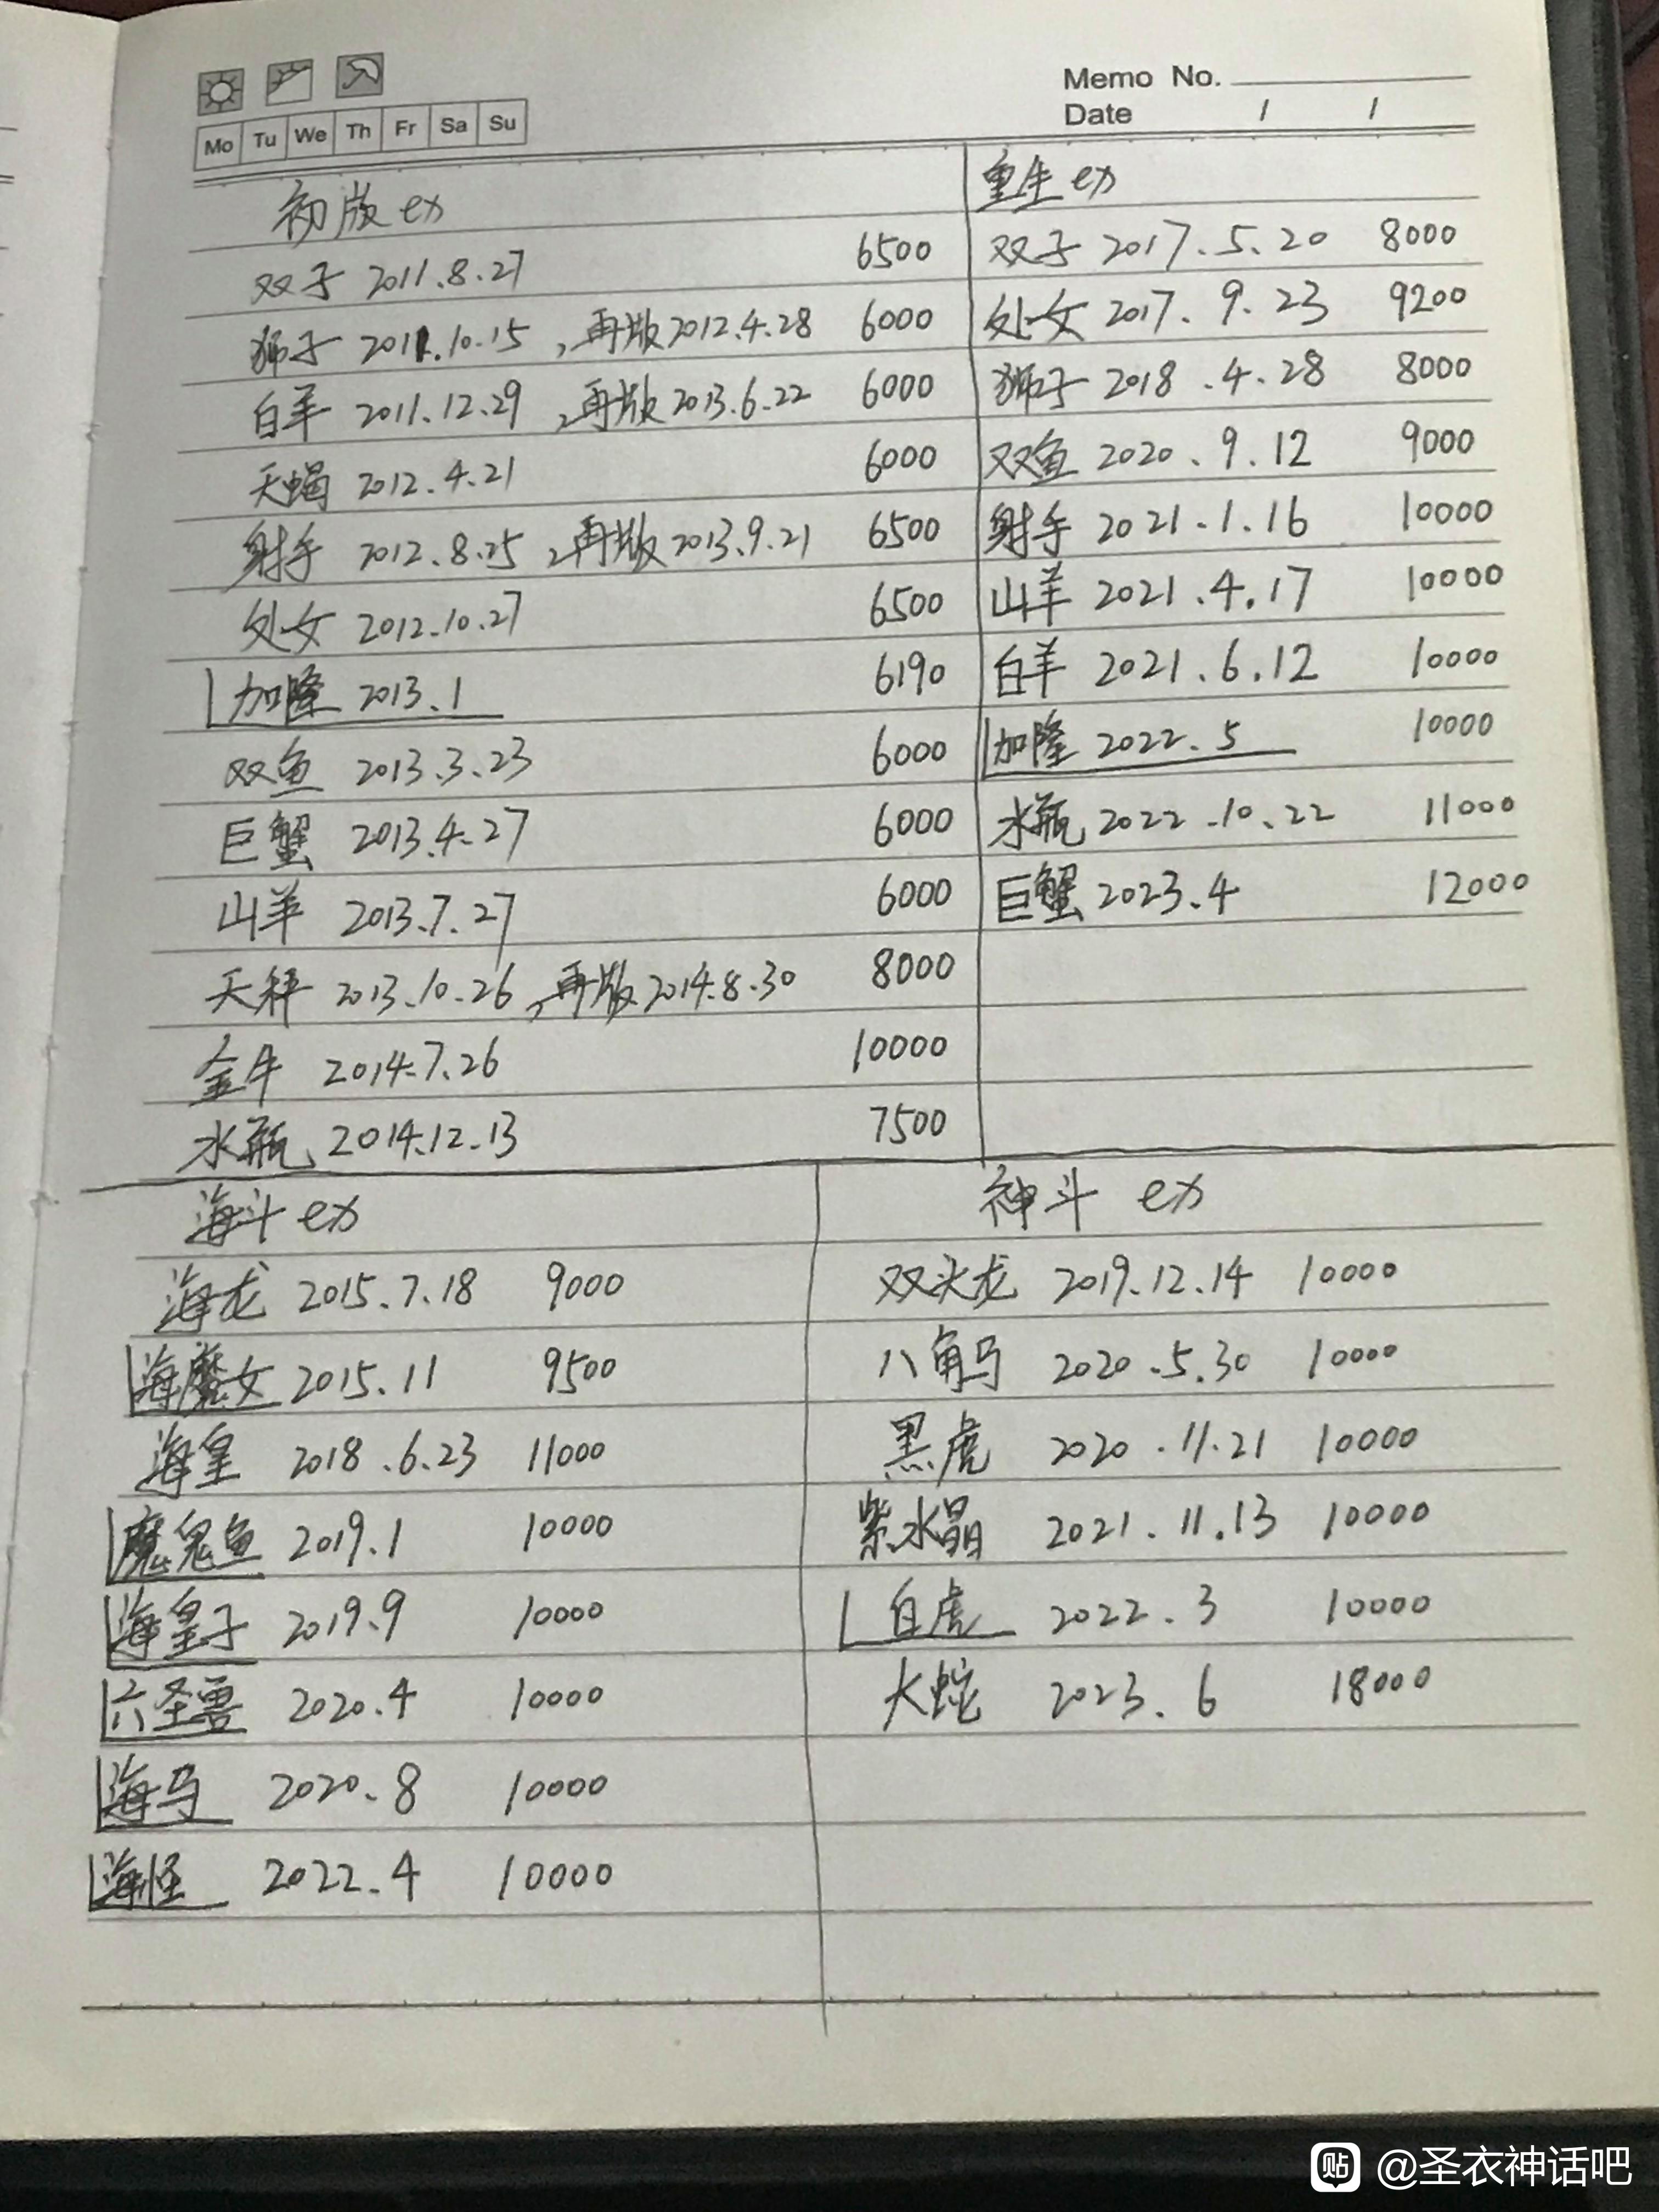 Memo No.
Date / /
Mo Tu We Th Fr Sa Su
初版ex
双子 2011.8.27 6500
狮子 2011.10.15，再版2012.4.28 6000
白羊 2011.12.29，再版2013.6.22 6000
天蝎 2012.4.21 6000
射手 2012.8.25，再版2013.9.21 6500
处女 2012.10.27 6500
加隆 2013.1 6190
双鱼 2013.3.23 6000
巨蟹 2013.4.27 6000
山羊 2013.7.27 6000
天秤 2013.10.26，再版2014.8.30 8000
金牛 2014.7.26 10000
水瓶 2014.12.13 7500
重生ex
双子 2017.5.20 8000
处女 2017.9.23 9200
狮子 2018.4.28 8000
双鱼 2020.9.12 9000
射手 2021.1.16 10000
山羊 2021.4.17 10000
白羊 2021.6.12 10000
加隆 2022.5 10000
水瓶 2022.10.22 11000
巨蟹 2023.4 12000
海斗ex
海龙 2015.7.18 9000
海魔女 2015.11 9500
海皇 2018.6.23 11000
魔鬼鱼 2019.1 10000
海皇子 2019.9 10000
六圣兽 2020.4 10000
海马 2020.8 10000
海怪 2022.4 10000
神斗 ex
双头龙 2019.12.14 10000
八角马 2020.5.30 10000
黑虎 2020.11.21 10000
紫水晶 2021.11.13 10000
白虎 2022.3 10000
大蛇 2023.6 18000
贴 @圣衣神话吧